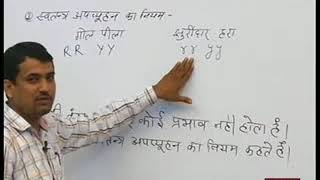 ② स्वतन्त्र अपव्यूहन का नियम -
गोल पीला झुर्रीदार हरा
RR YY rr yy
कोई प्रभाव नहीं होता है।
तन्त्र अपव्यूहन का नियम कहते हैं।